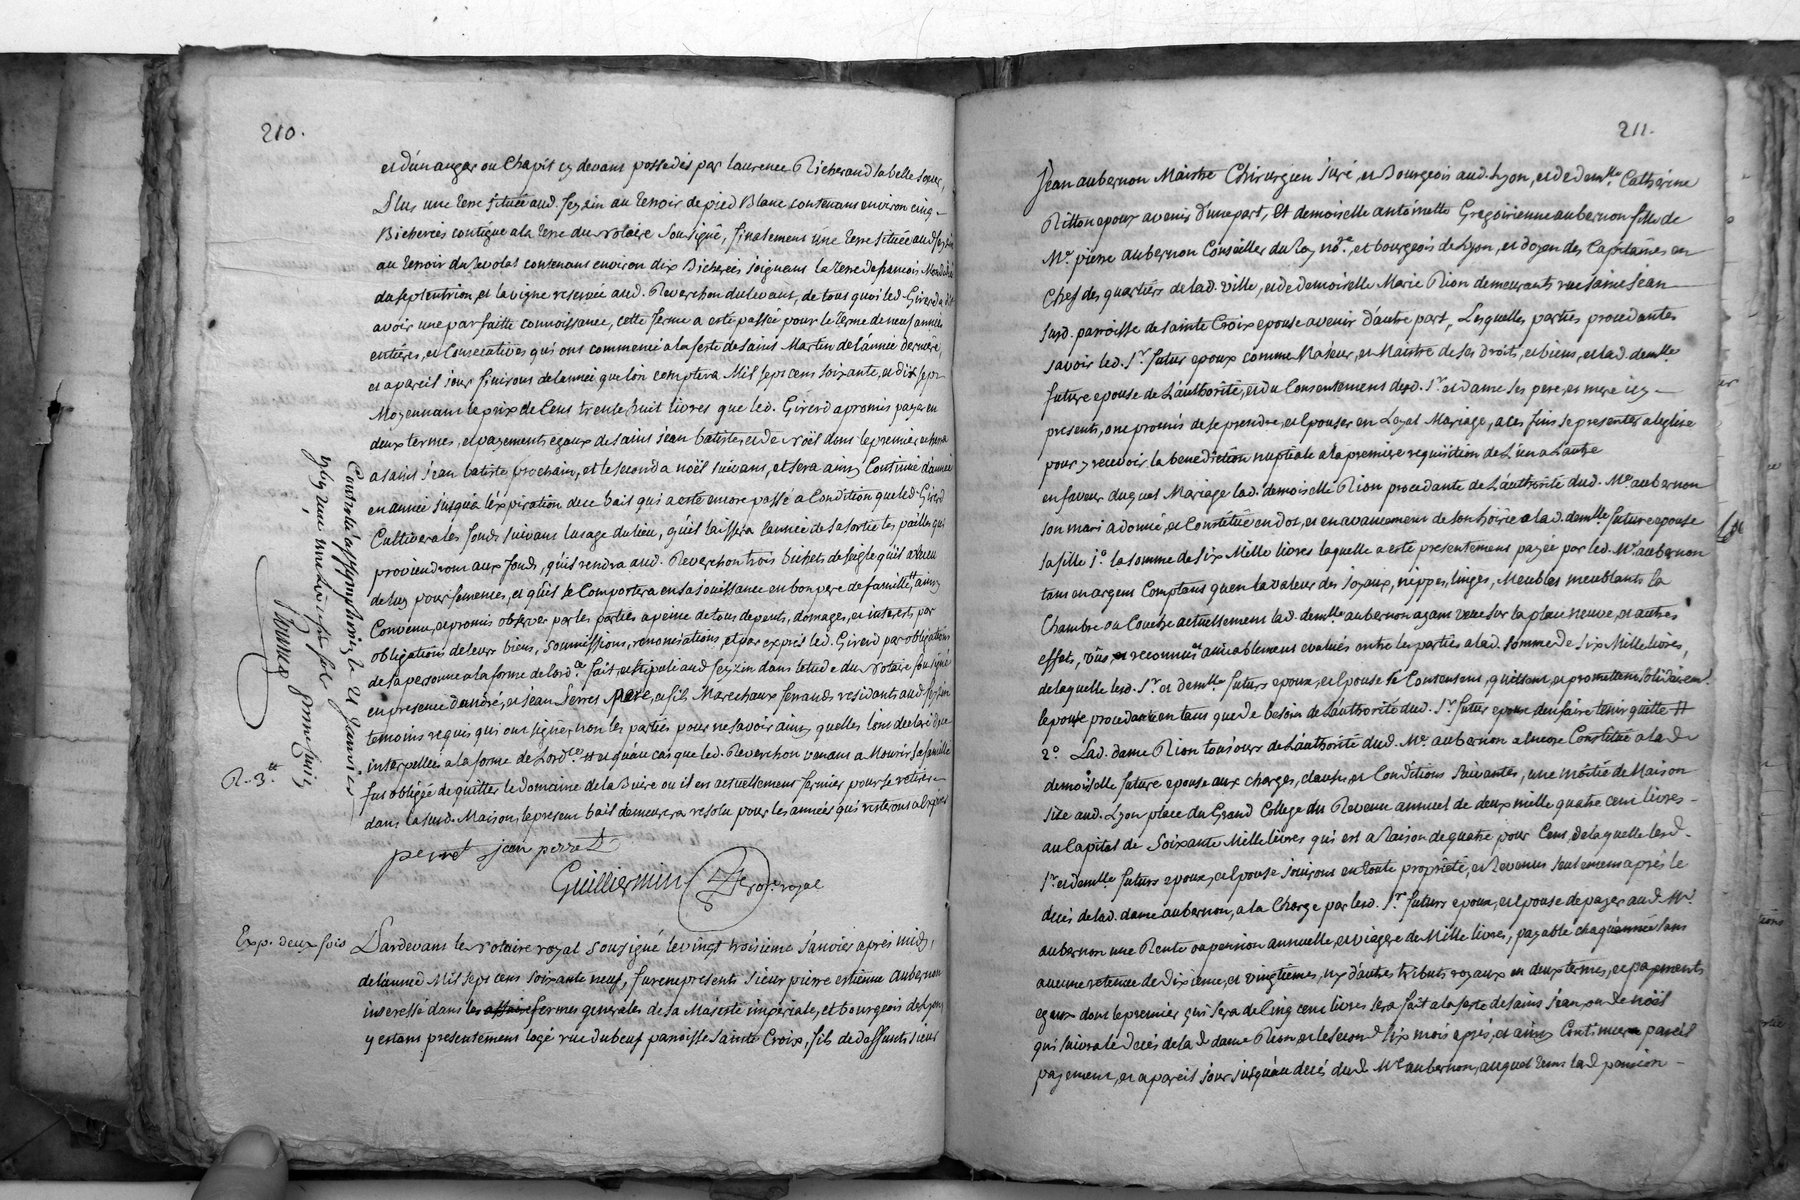 210.
et d'un angar ou Chapit cy devant possedés par laurence Richeraud sa belle soeur,
Plus une terre située aud. feyzin au terroir de pied Blanc contenant environ cinq
Bicherées contigue a la terre du Notaire Soussigné, finalement une terre située aud feyzin
au terroir du Revolat contenant environ dix Bicherées joignant la terre de francois
du septentrion, et la vigne reservée aud. Reverchon du levant, de tous quoi led. Girerd a dit
avoir une parfaitte connoissance, cette ferme a esté passée pour le terme de neuf années
entieres, et Consecutives qui ont commencé a la feste de saint Martin de l'année derniere,
et a pareil jour finiront de l'année que lon comptera Mil sept cent soixante, et dix sept
Moyennant le prix de Cent trente huit livres que led. Girerd a promis payer en
deux termes, et payements egaux de saint jean batiste, et de Noël dont le premier echera
a saint jean batiste prochain, et le second a noël suivant, et sera ainsy Continué d'année
en année jusqu'a l'expiration de ce bail qui a esté encore passé a Condition que led. Girerd
Cultivera les fonds suivant l'usage du lieu, qu'il laissera l'année de sa sortie les pailles qui
proviendront aux fonds, qu'il rendra aud. Reverchon trois bichets de seigle qu'il a receu
de luy pour semences, et qu'il se Comportera en sa jouissance en bon pere de famille # ainsy
Convenu, et promis observer par les parties a peine de tous depents, domages, et interets par
obligations de leurs biens, soumissions, renonciations, et par exprés led. Girerd par obligation
de sa personne a la forme de l'ord.ce fait, et stipulé aud feyzin dans letude du Notaire soussigné
en presence d'andré, et jean Perres pere, et fils Marechaux ferrands residants aud feyzin
temoins requis qui ont signé, non les parties pour ne savoir ainsy quelles l'ont declaré de ce
interpellées a la forme de Lord.ce # et qu'au cas que led. Reverchon venant a Mourir, sa famille
fut obligée de quitter le domaine de la Buire ou il est actuellement fermier pour se retirer
dans lasusd. Maison, le present bail demeurera resolu pour les années qui resteront a expirer
Controllé a st simphorien le 21 janvier
R. 3.tt
perret jean perret
Guilliermin No.re royal
Exp. deux fois
Pardevant le Notaire royal soussigné le vingt troisieme janvier aprés midy,
de l'année Mil sept cent soixante neuf, furent presents sieur pierre estienne aubernon
interessé dans les affaire fermes generales de sa Majesté imperiale, et bourgeois de Lyon
y estant presentement logé rue du beuf paroisse sainte Croix, fils de deffunts sieur
211.
Jean aubernon Maistre Chirurgien juré, et Bourgeois aud. Lyon, et de dem.lle Catherine
Ritton epoux avenir d'une part, Et demoiselle antoinette Gregoirienne aubernon fille de
M.e pierre aubernon Conseiller du Roy no.re, et bourgeois de Lyon, et doyen des Capitaines en
Chef des quartiers de lad. ville, et de demoiselle Marie Rion demeurants rue saint Jean
susd. paroisse de sainte Croix epouse avenir d'autre part, Lesquelles parties procedantes
savoir led. S.r futur epoux comme Majeur, et Maistre de ses droits, et biens, et lad. dem.lle
future epouse de L'authorité, et du Consentement desd. S.r et dame ses pere, et mere icy
presents, ont promis de se prendre, et epouser en Loyal Mariage, a ces fins se presenter a leglise
pour y recevoir la benediction nuptiale a la premiere requisition de L'un a L'autre
en faveur duquel Mariage lad. demoiselle Rion procedante de L'authorité dud. M.e aubernon
son mari a donné, et Constitué en dot, et en avancement de son hoirie a lad. dem.lle future epouse
sa fille 1.o la somme de six Mille livres laquelle a esté presentement payée par led. M.e aubernon
tant en argent Comptant qu'en la valeur des joyaux, nippes, linges, Meubles meublants la
Chambre ou Couche actuellement lad. dem.lle aubernon ayant vue sur la place neuve, et autres
effets, vus, et reconnus amicablement evalués entre les parties a lad. somme de six Mille livres,
de laquelle lesd. S.r et dem.lle futurs epoux, et epouse se Contentent, quittent, et promettent solidairem.t
lepouse procedante en tant que de besoin de L'authorité dud. S.r futur epoux den faire tenir quitte #
2.o Lad. dame Rion toujours de L'authorité dud. M.e aubernon a encore Constitué a lad.
demoiselle future epouse aux charges, clauses, et Conditions suivantes, une moitié de Maison
size aud. Lyon place du Grand College du Revenu annuel de deux mille quatre cent livres
au Capital de Soixante Mille livres qui est a Raison de quatre pour Cent, de laquelle lesd.
S.r et dem.lle futurs epoux, et epouse jouiront en toute proprieté, et Revenus seulement aprés le
decés de lad. dame aubernon, a la Charge par lesd. S.r futurs epoux, et epouse de payer aud. M.e
aubernon une Rente ou pension annuelle, et viagere de Mille livres, payable chaqu'année sans
aucune retenue de dixieme, et vingtiemes, ny d'autres tributs royaux en deux termes, et payements
egaux dont le premier qui sera de Cinq cent livres sera fait a la feste de saint jean, ou de noël
qui suivra le decés de lad dame Rion, et le second six mois aprés, et ainsy Continuer pareil
payement, et a pareil jour jusqu'au decés dud M.e aubernon, auquel tems lad pension